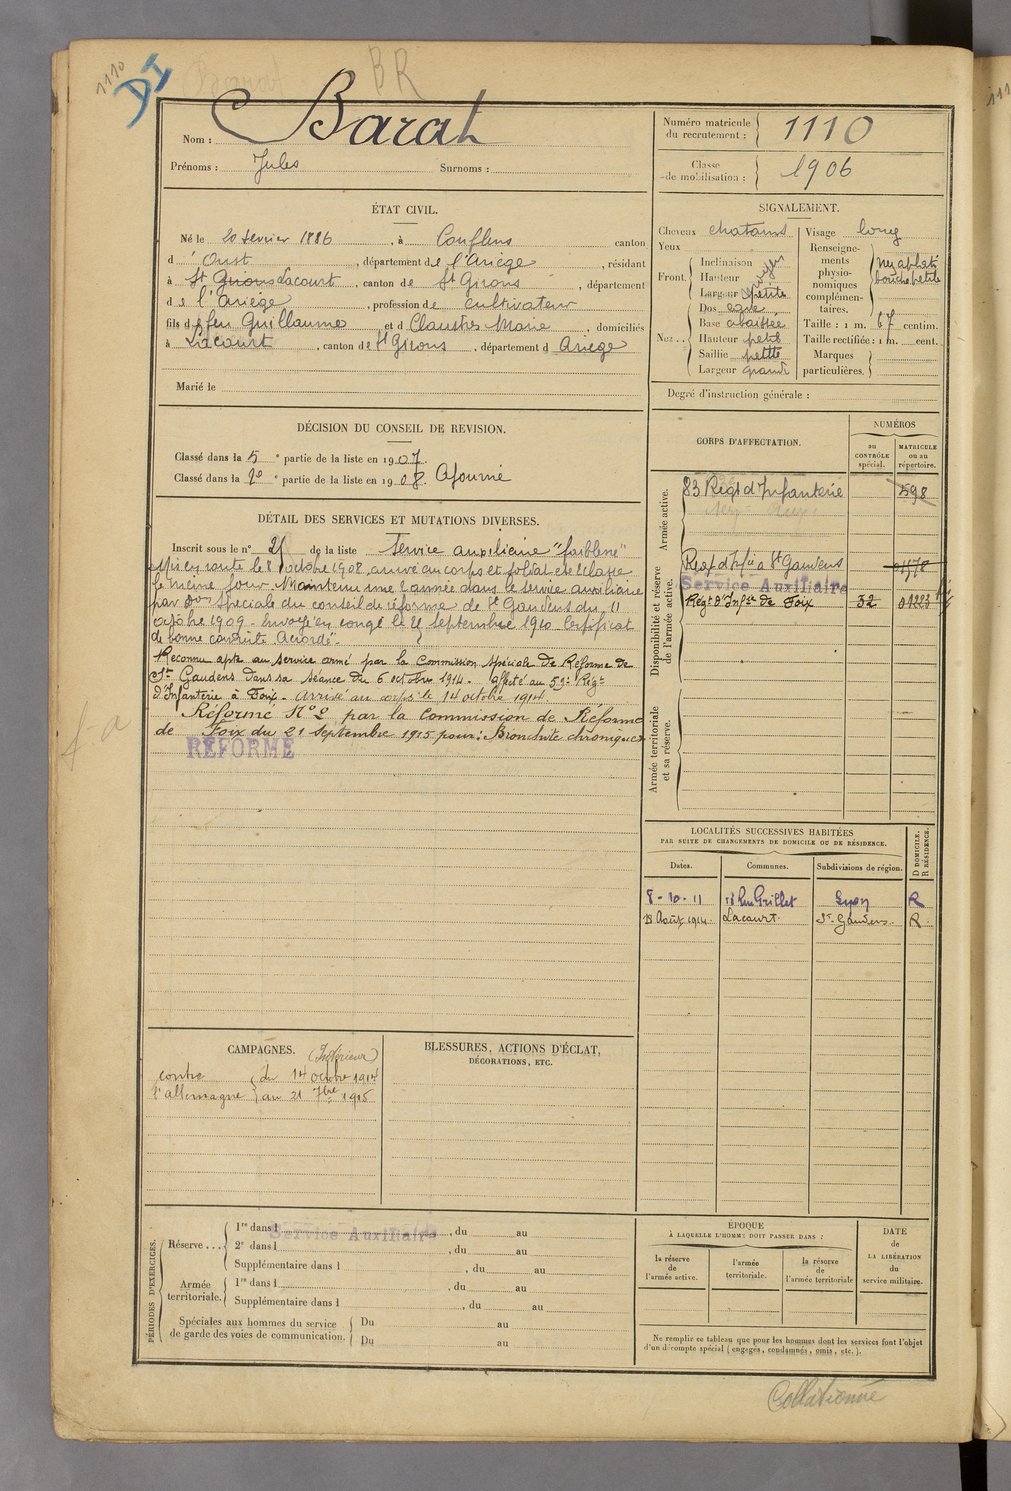 1110
BR
Nom : Barat
Prénoms : Jules Surnoms :
Numéro matricule du recrutement : 1110
Classe de mobilisation : 1906
ÉTAT CIVIL.
Né le 20 février 1886, à Couflens canton
d'Oust, département de l'Ariège, résidant
à St Girons Lacourt, canton de St Girons, département
de l'Ariège, profession de cultivateur
fils de feu Guillaume et d Claustres Marie, domiciliés
à Lacourt, canton de St Girons, département d Ariège
Marié le
SIGNALEMENT.
Cheveux chatains
Yeux
Front. Inclinaison
Hauteur moyen
Largeur petite
Nez.. Dos
Base abaissée
Hauteur petit
Saillie petite
Largeur grand
Visage long
Renseignements physionomiques complémentaires. nez aplati bouche petite
Taille : 1 m. 67 centim.
Taille rectifiée : 1 m. cent.
Marques particulières.
Degré d'instruction générale :
DÉCISION DU CONSEIL DE REVISION.
Classé dans la 5e partie de la liste en 1907.
Classé dans la 2e partie de la liste en 1908. Ajourné
DÉTAIL DES SERVICES ET MUTATIONS DIVERSES.
Inscrit sous le n° 21 de la liste Service auxiliaire "faiblesse"
Mis en route le 8 octobre 1908, arrivé au corps et soldat de 2e classe
le même jour. Maintenu une 2e année dans le service auxiliaire
par don spéciale du conseil de réforme de St Gaudens du 11
octobre 1909. Envoyé en congé le 25 septembre 1910. Certificat
de bonne conduite "Accordé".
Reconnu apte au service armé par la Commission spéciale de Réforme de
St Gaudens dans sa séance du 6 octobre 1914. Affecté au 59e Régt
d'Infanterie à Foix. Arrivé au corps le 14 octobre 1914
Réformé N° 2 par la Commission de Réforme
de Foix du 21 septembre 1915 pour : Bronchite chronique
RÉFORMÉ
CORPS D'AFFECTATION.
NUMÉROS
au CONTRÔLE spécial.
MATRICULE ou au répertoire.
Armée active.
83 Régt d'Infanterie 598
Disponibilité et réserve de l'armée active.
Régt d'Infie à St Gaudens
Service Auxiliaire
Régt d'Infie de Foix 32 01223
Armée territoriale et sa réserve.
LOCALITÉS SUCCESSIVES HABITÉES
PAR SUITE DE CHANGEMENTS DE DOMICILE OU DE RÉSIDENCE.
Dates. Communes. Subdivisions de région. D DOMICILE. R RÉSIDENCE.
8-10-11 Rue Grillet Lyon R
Août 1914 Lacourt. St Gaudens R
CAMPAGNES. (Intérieur)
contre l'allemagne
du 14 octobre 1914
au 21 7bre 1915
BLESSURES, ACTIONS D'ÉCLAT,
DÉCORATIONS, ETC.
PÉRIODES D'EXERCICES.
Réserve... 1re dans l Service Auxiliaire, du au
2e dans l, du au
Supplémentaire dans l, du au
Armée territoriale. 1re dans l, du au
Supplémentaire dans l, du au
Spéciales aux hommes du service de garde des voies de communication.
Du au
Du au
ÉPOQUE
À LAQUELLE L'HOMME DOIT PASSER DANS :
la réserve de l'armée active.
l'armée territoriale.
la réserve de l'armée territoriale
DATE de LA LIBÉRATION du service militaire.
Ne remplir ce tableau que pour les hommes dont les services font l'objet
d'un décompte spécial (engagés, condamnés, omis, etc.).
Collationné